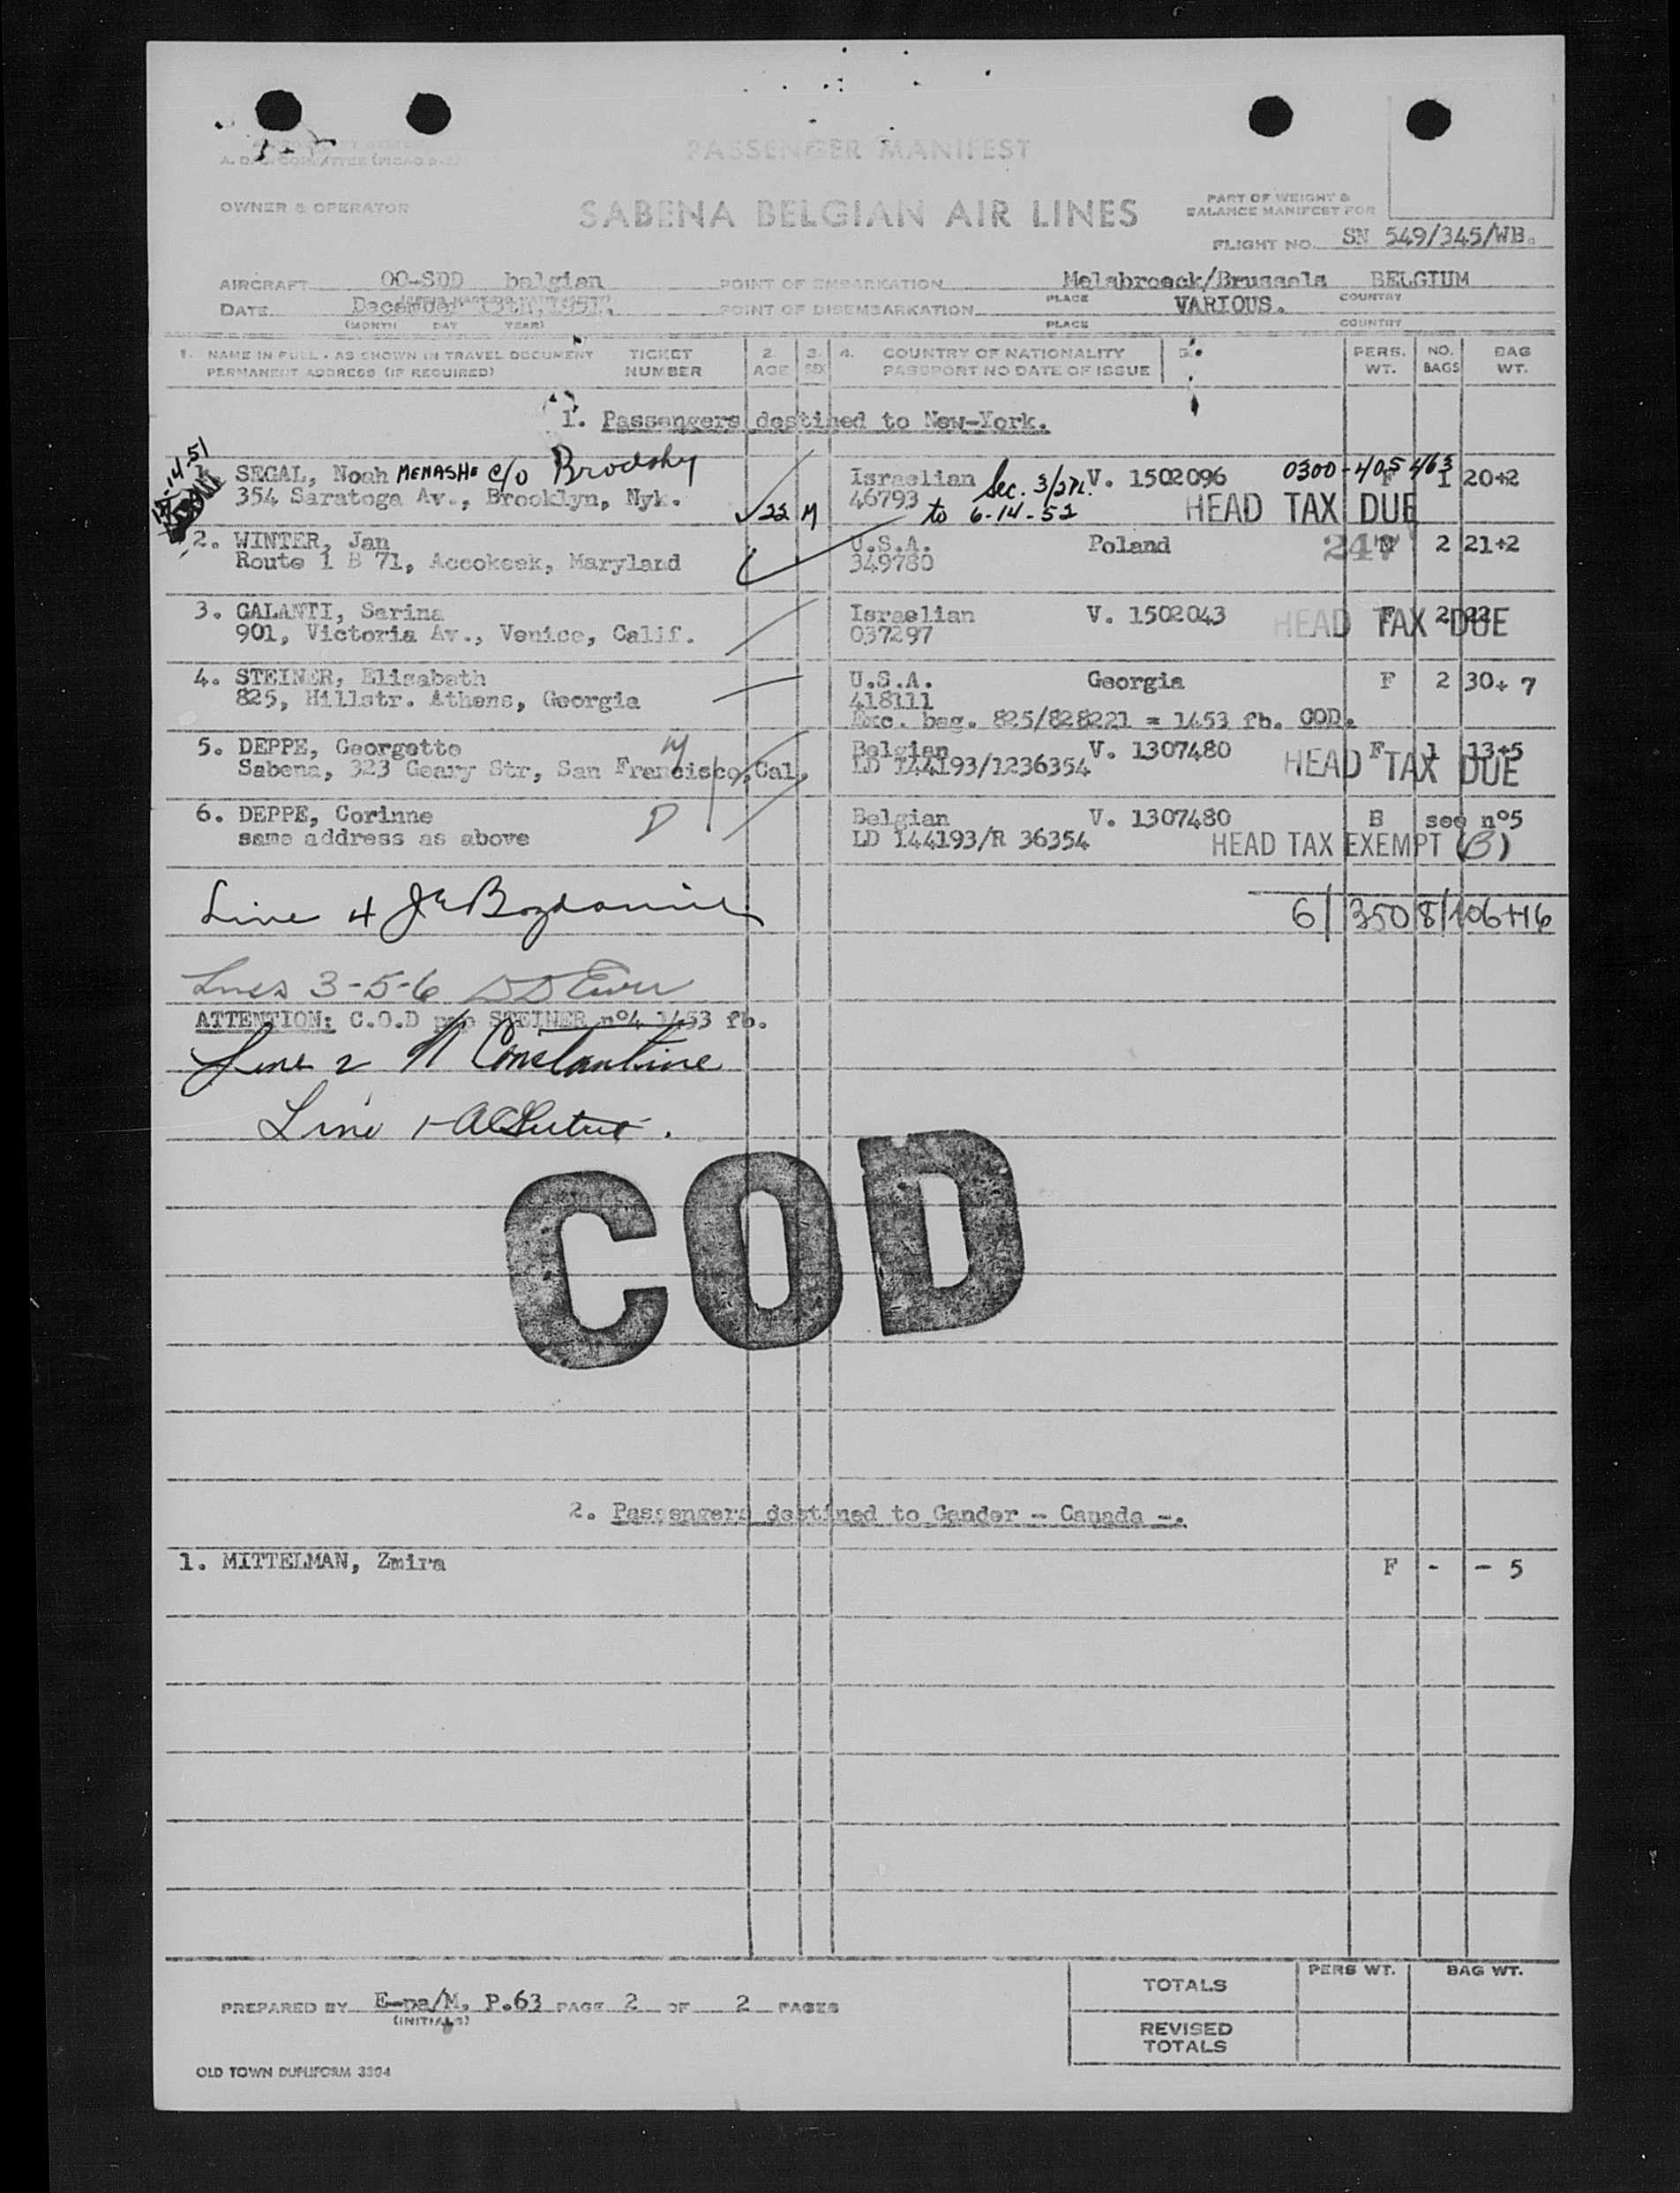 PASSENGER MANIFEST
OWNER & OPERATOR
SABENA BELGIAN AIR LINES
PART OF WEIGHT &
BALANCE MANIFEST FOR
FLIGHT NO. SN 549/345/WB.
AIRCRAFT OO-SDD belgian POINT OF EMBARKATION Melsbroeck/Brussels BELGIUM
PLACE COUNTRY
DATE December 1951. POINT OF DISEMBARKATION VARIOUS.
(MONTH DAY YEAR) PLACE COUNTRY
1. NAME IN FULL - AS SHOWN IN TRAVEL DOCUMENT TICKET 2. 3. 4. COUNTRY OF NATIONALITY 5. PERS. NO. BAG
PERMANENT ADDRESS (IF REQUIRED) NUMBER AGE SEX PASSPORT NO DATE OF ISSUE WT. BAGS WT.
1. Passengers destined to New-York.
SEGAL, Noah MENASHE c/o Brodsky Israelian Sec. 3/ V. 1502096 0300-405463 F 1 20+2
354 Saratoga Av., Brooklyn, Nyk. 22 M 46793 to 6-14-52 HEAD TAX DUE
2. WINTER, Jan U.S.A. Poland 247 2 21+2
Route 1 B 71, Accokeek, Maryland 349780
3. GALANTI, Sarina Israelian V. 1502043 HEAD TAX DUE F 2
901, Victoria Av., Venice, Calif. 037297
4. STEINER, Elisabeth U.S.A. Georgia F 2 30+ 7
825, Hillstr. Athens, Georgia 418111
Exc. bag. 825/828221 = 1453 fb. COD.
5. DEPPE, Georgette M Belgian V. 1307480 F 1 13+5
Sabena, 323 Geary Str, San Francisco, Cal. LD 144193/1236354 HEAD TAX DUE
6. DEPPE, Corinne D Belgian V. 1307480 B see n°5
same address as above LD 144193/R 36354 HEAD TAX EXEMPT (B)
Line 4 6 350 8 106+16
Lines 3-5-6
ATTENTION: C.O.D STEINER n°4 1453 fb.
Line 2 N Constantine
Line 1
COD
2. Passengers destined to Gander - Canada -.
1. MITTELMAN, Zmira F - - 5
PERS WT. BAG WT.
TOTALS
PREPARED BY E-pa/M. P.63 PAGE 2 OF 2 PAGES
(INITIALS)
REVISED
TOTALS
OLD TOWN DUPLIFORM 3304